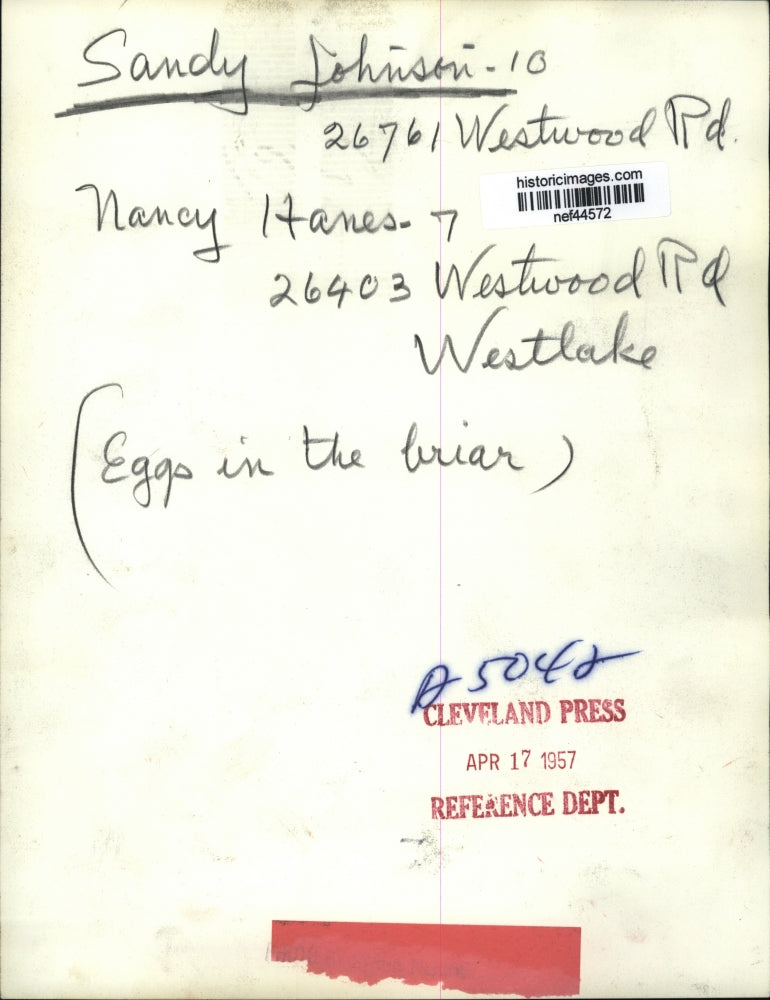 Sandy Johnson - 10
26761 Westwood Rd.
historicimages.com
nef44572
Nancy Hanes - 7
26403 Westwood Rd
Westlake
(Eggs in the briar)
A 5042
CLEVELAND PRESS
APR 17 1957
REFERENCE DEPT.